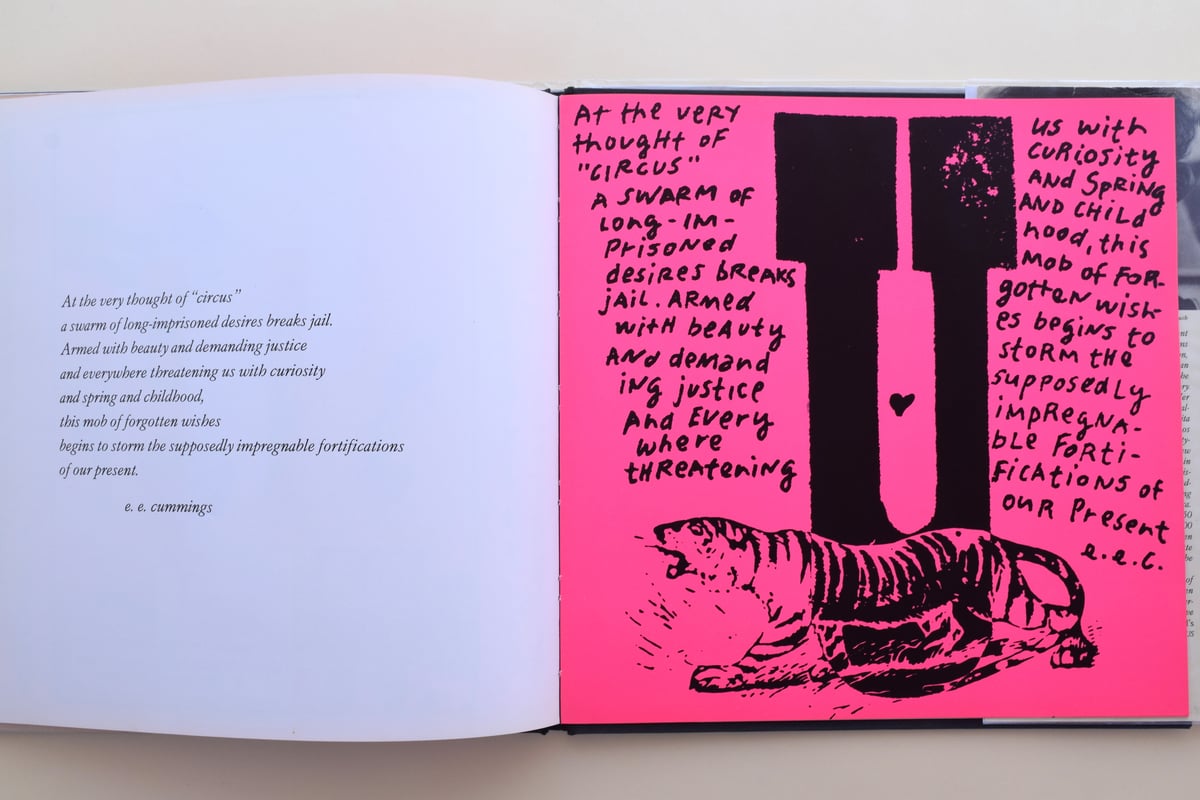 At the very thought of “circus”
a swarm of long-imprisoned desires breaks jail.
Armed with beauty and demanding justice
and everywhere threatening us with curiosity
and spring and childhood,
this mob of forgotten wishes
begins to storm the supposedly impregnable fortifications
of our present.
e. e. cummings
At the very
thought of
"CIRCUS"
A SWARM of
Long-IM-
PrisoNed
desires bReaks
jAIL. ARMed
witH beAuty
ANd demand
iNg justice
And EVery
where
tHReateniNg
U
us with
CuRiosity
ANd SpRiNg
AND CHiLd
hood, this
Mob of FoR-
gotteN wish-
es begins to
stoRM tHe
supposedLy
iMpRegNA-
bLe FoRti-
FicAtioNs of
ouR Present
e.e.c.